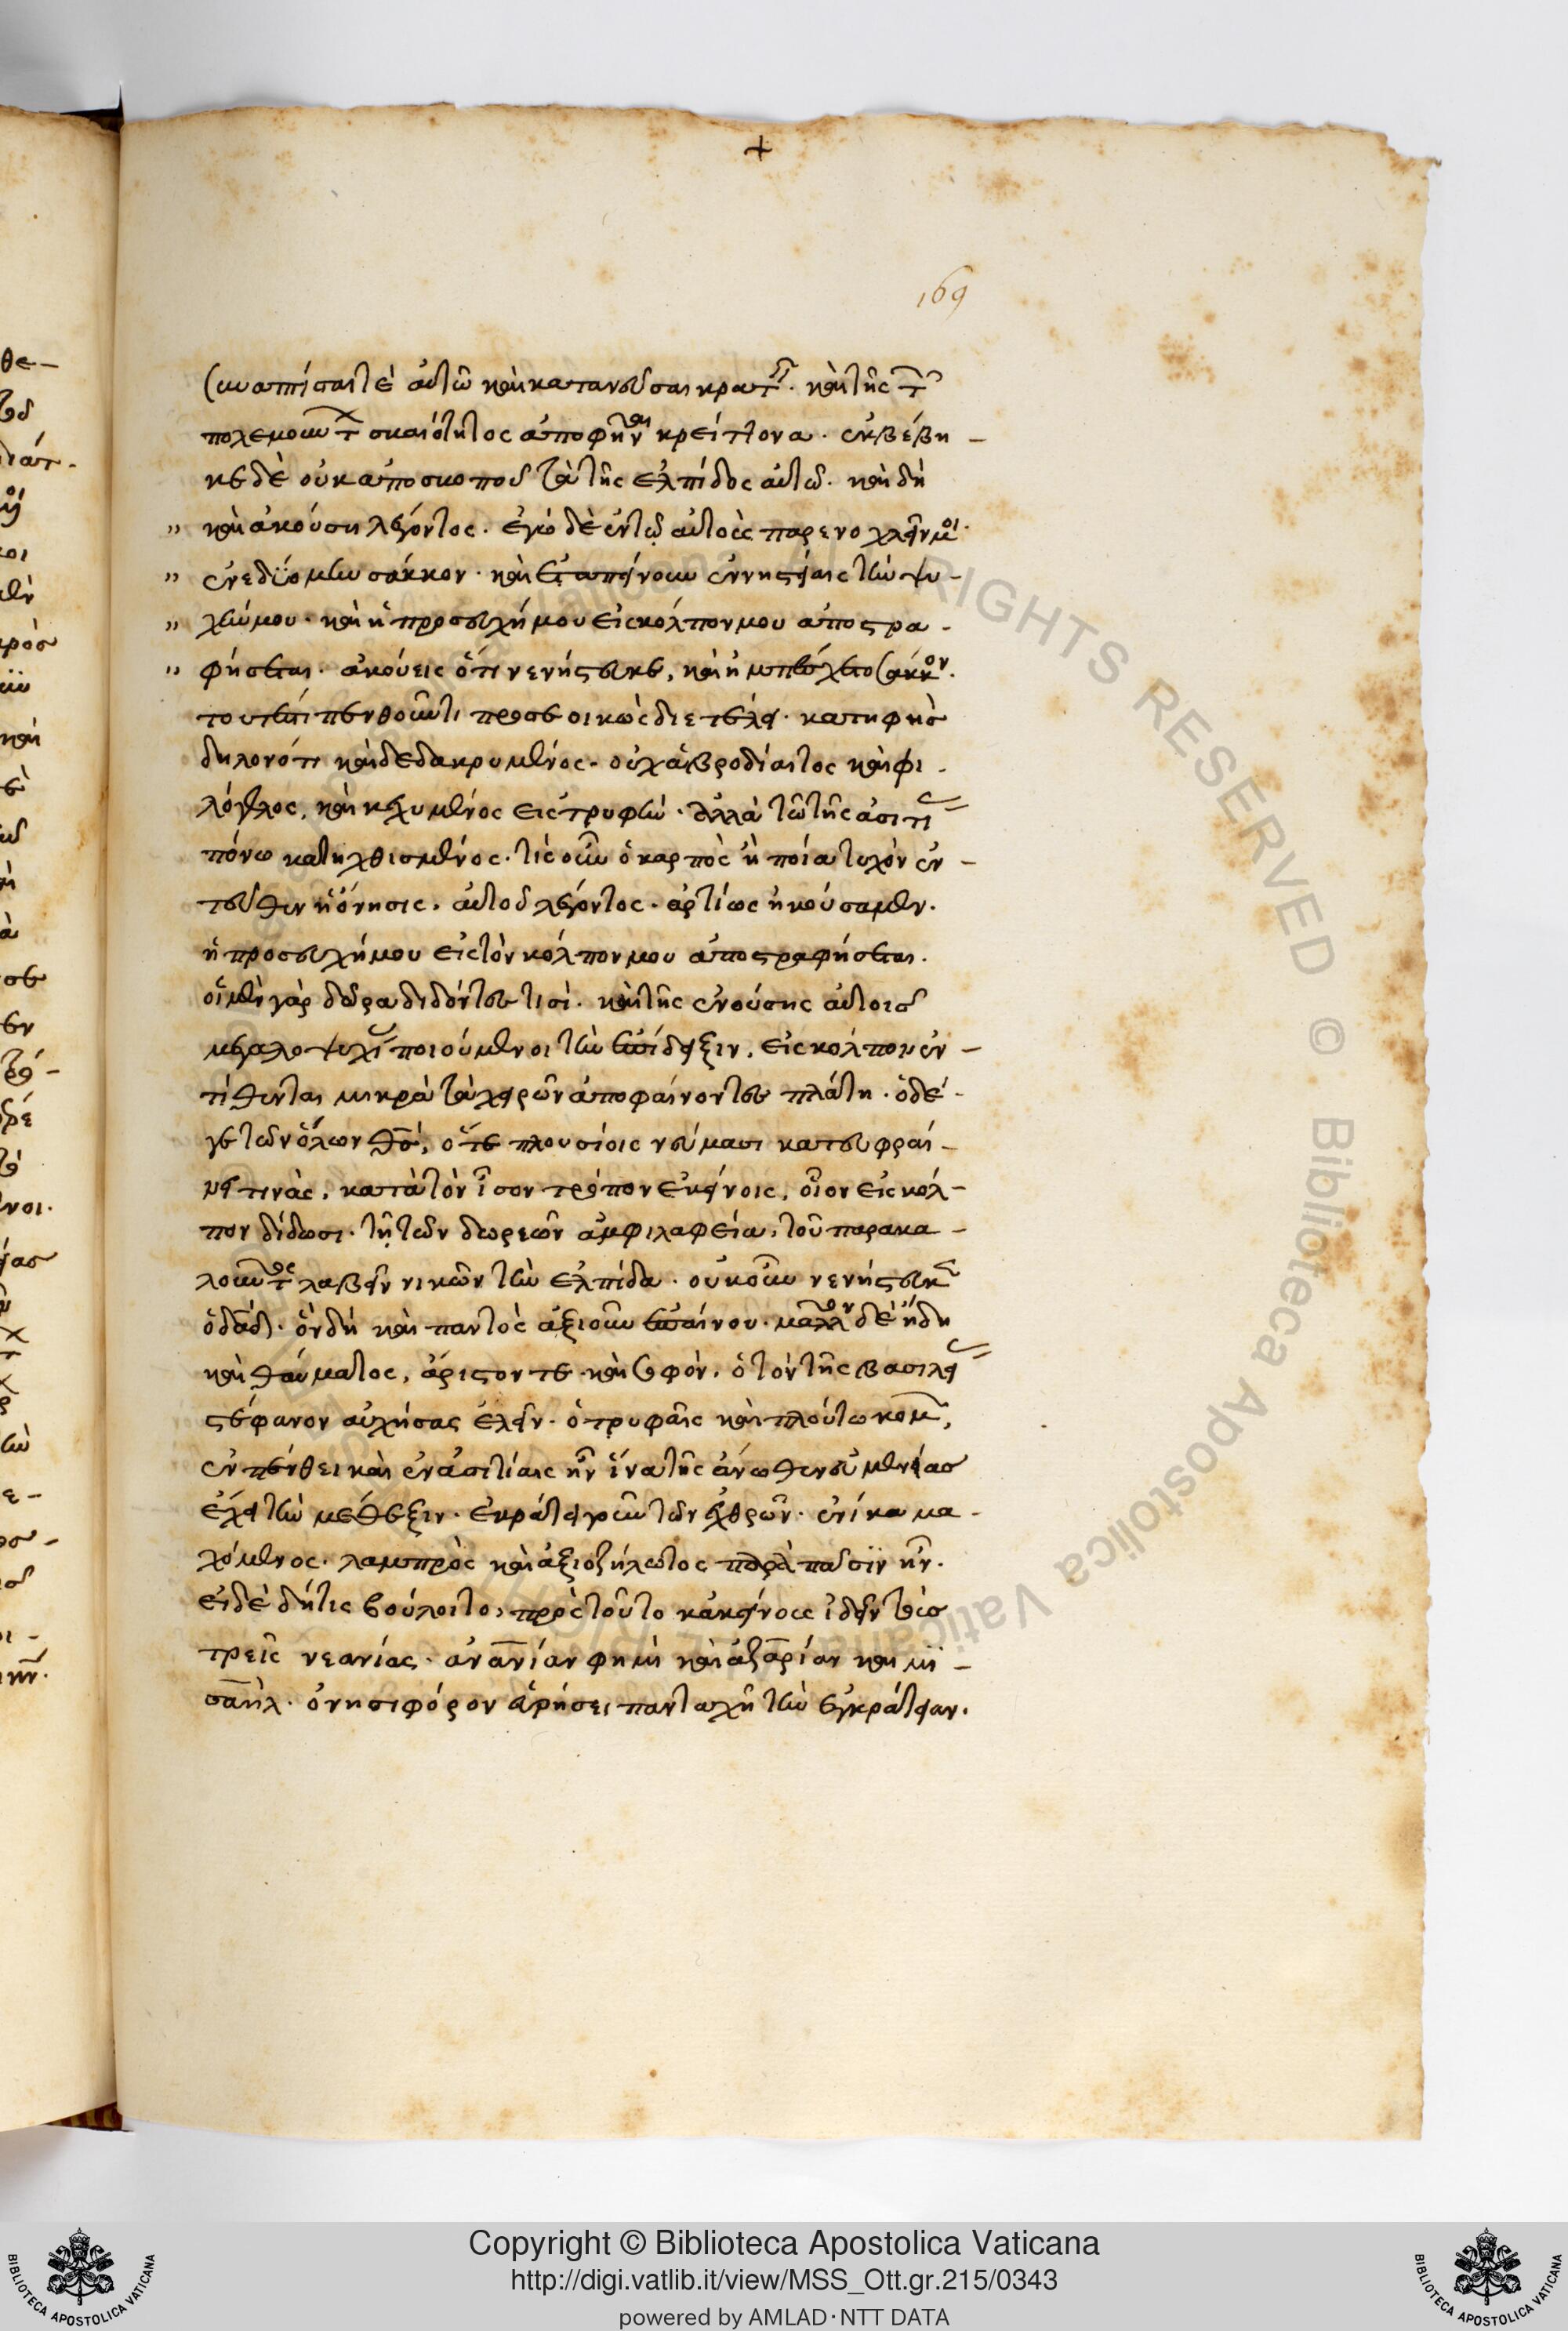 +
169
συνασπίσαι τὲ αὐτῶ καὶ κατανεῦσαι κρατεῖν. καὶ τῆς τῶν
πολεμούντων σκαιότητος ἀποφῆναι κρείττονα. ἐκβέβη -
κε δὲ οὐκ ἀπὸ σκοποῦ τὰ τῆς ἐλπίδος αὐτῶ. καὶ δὴ
" καὶ ἀκούση λέγοντος. ἐγὼ δὲ ἐν τῷ αὐτοὺς παρενοχλεῖν μοι.
" ἐνεδυόμην σάκκον. καὶ ἐταπείνουν ἐν νηστείαις τὴν ψυ -
" χήν μου. καὶ ἡ προσευχή μου εἰς κόλπον μου ἀποστρα -
" φήσεται. ἀκούεις ὅτι νενήστευκε, καὶ ἠμπέσχετο σάκκον.
τουτέστι πενθοῦντι προσεοικὼς διετέλει. κατηφὴς
δηλονότι καὶ δεδακρυμένος. οὐχ ἁβροδίαιτος καὶ φι -
λόγελος, καὶ κεχυμένος εἰς τρυφὴν. ἀλλὰ τῶ τῆς ἀσιτίας
πόνω κατηχθισμένος. τίς οὖν ὁ καρπὸς ἢ ποία τυχὸν ἐν -
τεῦθεν ἡ ὄνησις, αὐτοῦ λέγοντος. ἀρτίως ἠκούσαμεν.
ἡ προσευχή μου εἰς τὸν κόλπον μου ἀποστραφήσεται.
οἱ μὲν γὰρ δῶρα διδόντες τισὶ. καὶ τῆς ἐνούσης αὐτοῖς
μεγαλοψυχίας ποιούμενοι τὴν ἐπίδειξιν, εἰς κόλπον ἐν -
τίθενται μικρὰ τὰ χειρῶν ἀποφαίνοντες πλάτη. ὁ δέ -
γε τῶν ὅλων θεός, ὅτε πλουσίοις νεύμασι κατευφραί -
νει τινὰς, κατὰ τὸν ἶσον τρόπον ἐκείνοις, οἷον εἰς κόλ -
πον δίδωσι. τῇ τῶν δωρεῶν ἀμφιλαφεία, τοῦ παρακα -
λοῦντος λαβεῖν νικῶν τὴν ἐλπίδα. οὐκοῦν νενήστευκεν
ὁ δαδ. ὃν δὴ καὶ παντὸς ἀξιοῦν ἐπαίνου. μᾶλλον δὲ ἤδη
καὶ θαύματος, ἄριστόν τε καὶ σοφόν. ὁ τὸν τῆς βασιλείας
στέφανον αὐχήσας ἑλεῖν. ὁ τρυφαῖς καὶ πλούτω κομῶν,
ἐν πένθει καὶ ἐν ἀσιτίαις ἦν ἵνα τῆς ἄνωθεν εὐμενείας
ἔχει τὴν μέθεξιν. ἐκράτει γοῦν τῶν ἐχθρῶν. ἐνίκα μα -
χόμενος. λαμπρὸς καὶ ἀξιοζήλωτος παρὰ πᾶσιν ἦν.
εἰ δὲ δή τις βούλοιτο, πρὸς τοῦτο κἀκείνους ἰδεῖν τοὺς
τρεῖς νεανίας. ἀνανίαν φημὶ καὶ ἀζαρίαν καὶ μι -
σαὴλ. ὀνησιφόρον εὑρήσει πανταχῆ τὴν ἐγκράτειαν.
Copyright © Biblioteca Apostolica Vaticana
http://digi.vatlib.it/view/MSS_Ott.gr.215/0343
powered by AMLAD·NTT DATA